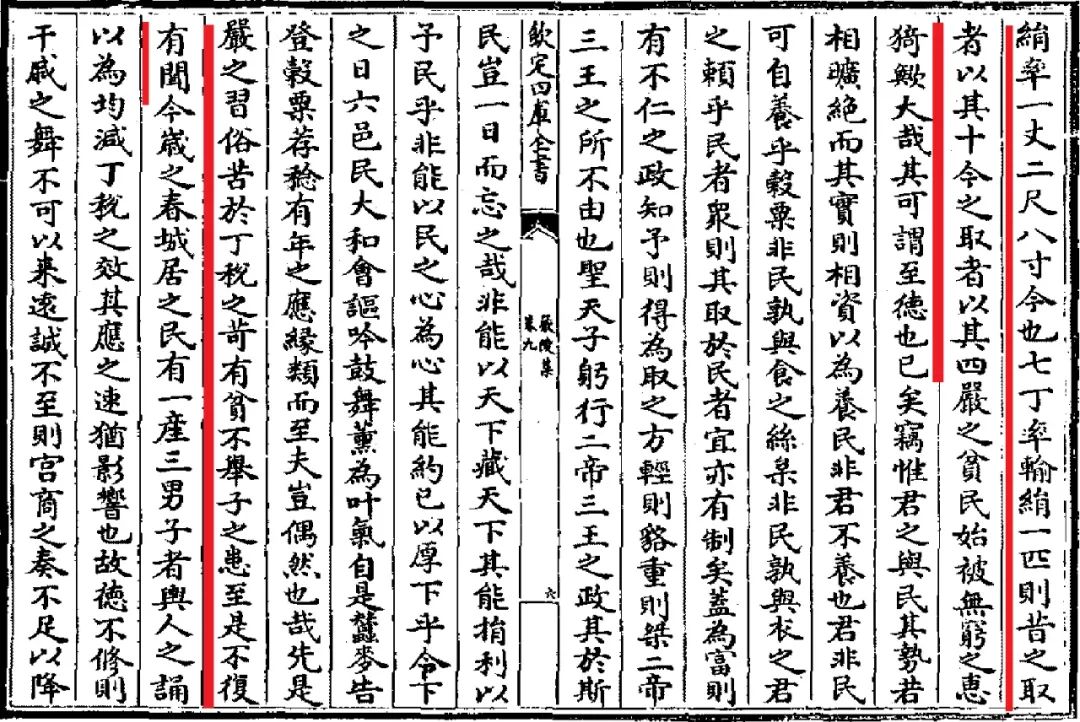 絹率一丈二尺八寸今也七丁率輸絹一匹則昔之取
者以其十今之取者以其四嚴之貧民始被無窮之惠
猗歟大哉其可謂至德也已矣竊惟君之與民其勢若
相曠絶而其實則相資以為養民非君不養也君非民
可自養乎穀粟非民孰與食之絲枲非民孰與衣之君
之賴乎民者衆則其取於民者宜亦有制矣蓋為富則
有不仁之政知予則得為取之方輕則貉重則桀二帝
三王之所不由也聖天子躬行二帝三王之政其於斯
欽定四庫全書
嚴陵集
卷九
六
民豈一日而忘之哉非能以天下藏天下其能捐利以
予民乎非能以民之心為心其能約已以厚下乎令下
之日六邑民大和會謳吟鼓舞薰為叶氣自是蠶麥告
登穀粟荐稔有年之應緣類而至夫豈偶然也哉先是
嚴之習俗苦於丁稅之苛有貧不舉子之患至是不復
有聞今嵗之春城居之民有一產三男子者輿人之誦
以為均減丁稅之效其應之速猶影響也故德不修則
干戚之舞不可以来遠誠不至則宮商之奏不足以降